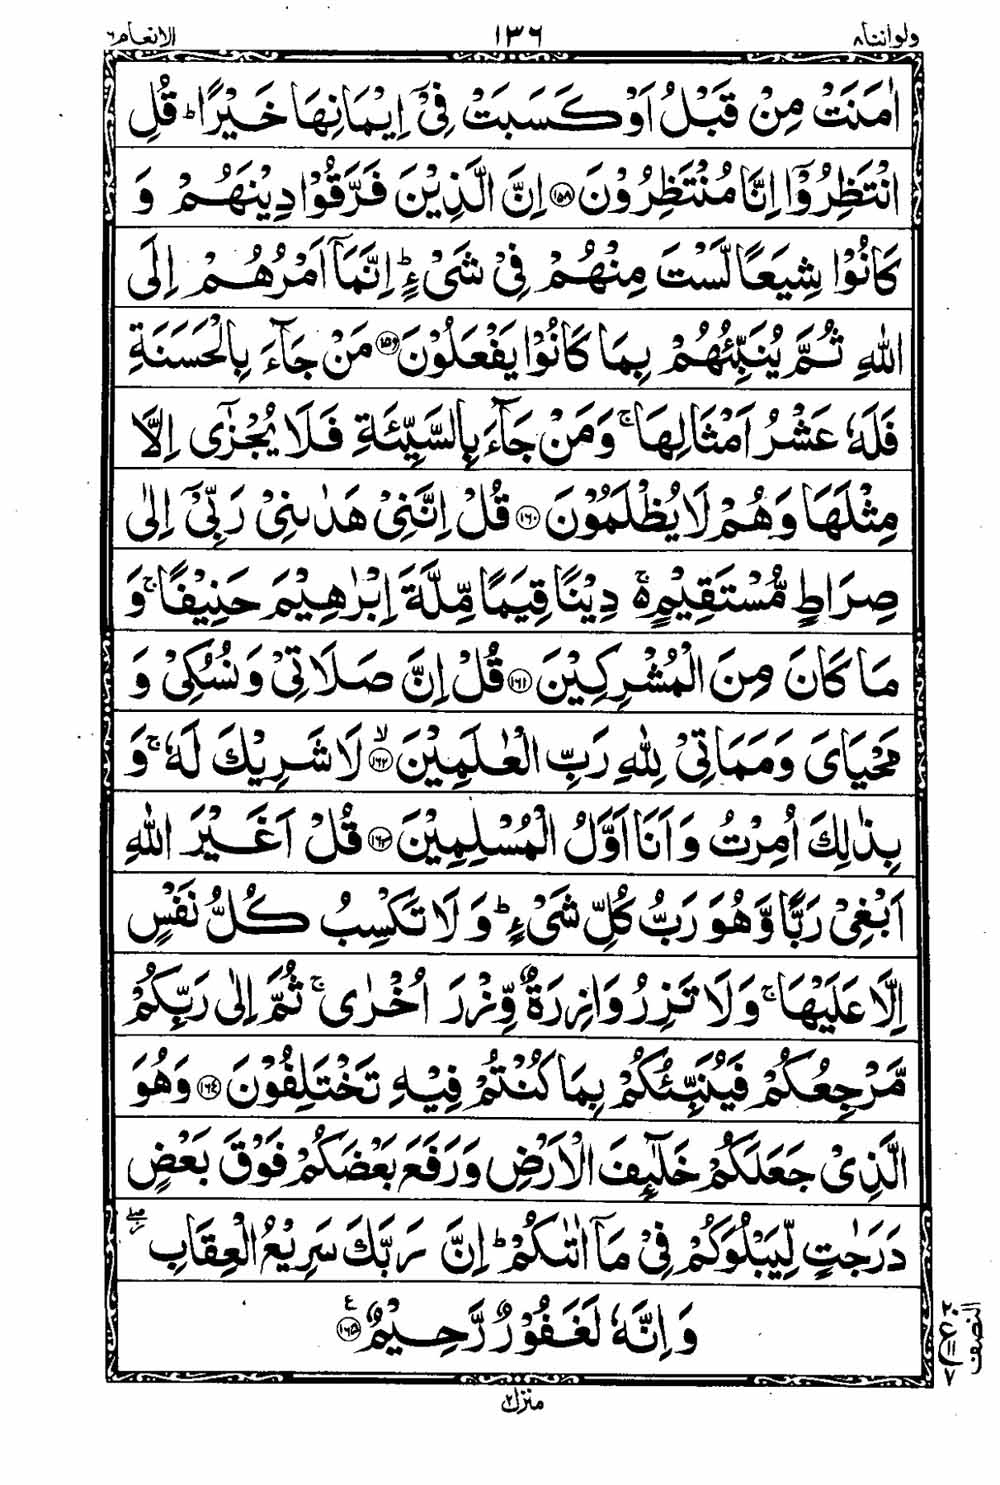 ولواننا ٨ ١٣٦ الانعام ٦
اٰمَنَتْ مِنْ قَبْلُ اَوْ كَسَبَتْ فِىْۤ اِيْمَانِهَا خَيْرًا ؕ قُلِ
انْتَظِرُوْۤا اِنَّا مُنْتَظِرُوْنَ ﴿١٥٨﴾ اِنَّ الَّذِيْنَ فَرَّقُوْا دِيْنَهُمْ وَ
كَانُوْا شِيَعًا لَّسْتَ مِنْهُمْ فِىْ شَىْءٍ ؕ اِنَّمَاۤ اَمْرُهُمْ اِلَى
اللّٰهِ ثُمَّ يُنَبِّئُهُمْ بِمَا كَانُوْا يَفْعَلُوْنَ ﴿١٥٩﴾ مَنْ جَآءَ بِالْحَسَنَةِ
فَلَهٗ عَشْرُ اَمْثَالِهَا ۚ وَمَنْ جَآءَ بِالسَّيِّئَةِ فَلَا يُجْزٰٓى اِلَّا
مِثْلَهَا وَهُمْ لَا يُظْلَمُوْنَ ﴿١٦٠﴾ قُلْ اِنَّنِىْ هَدٰىنِىْ رَبِّىْۤ اِلٰى
صِرَاطٍ مُّسْتَقِيْمٍ ۚ۬ دِيْنًا قِيَمًا مِّلَّةَ اِبْرٰهِيْمَ حَنِيْفًا ۚ وَ
مَا كَانَ مِنَ الْمُشْرِكِيْنَ ﴿١٦١﴾ قُلْ اِنَّ صَلَاتِىْ وَنُسُكِىْ وَ
مَحْيَاىَ وَمَمَاتِىْ لِلّٰهِ رَبِّ الْعٰلَمِيْنَ ۙ﴿١٦٢﴾ لَا شَرِيْكَ لَهٗ ۚ وَ
بِذٰلِكَ اُمِرْتُ وَاَنَا اَوَّلُ الْمُسْلِمِيْنَ ﴿١٦٣﴾ قُلْ اَغَيْرَ اللّٰهِ
اَبْغِىْ رَبًّا وَّهُوَ رَبُّ كُلِّ شَىْءٍ ؕ وَلَا تَكْسِبُ كُلُّ نَفْسٍ
اِلَّا عَلَيْهَا ۚ وَلَا تَزِرُ وَازِرَةٌ وِّزْرَ اُخْرٰى ۚ ثُمَّ اِلٰى رَبِّكُمْ
مَّرْجِعُكُمْ فَيُنَبِّئُكُمْ بِمَا كُنْتُمْ فِيْهِ تَخْتَلِفُوْنَ ﴿١٦٤﴾ وَهُوَ
الَّذِىْ جَعَلَكُمْ خَلٰٓئِفَ الْاَرْضِ وَرَفَعَ بَعْضَكُمْ فَوْقَ بَعْضٍ
دَرَجٰتٍ لِّيَبْلُوَكُمْ فِىْ مَاۤ اٰتٰىكُمْ ؕ اِنَّ رَبَّكَ سَرِيْعُ الْعِقَابِ ۖ
وَاِنَّهٗ لَغَفُوْرٌ رَّحِيْمٌ ﴿١٦٥﴾
النصف
٢٠
ع
١١
٧
منزل ٢